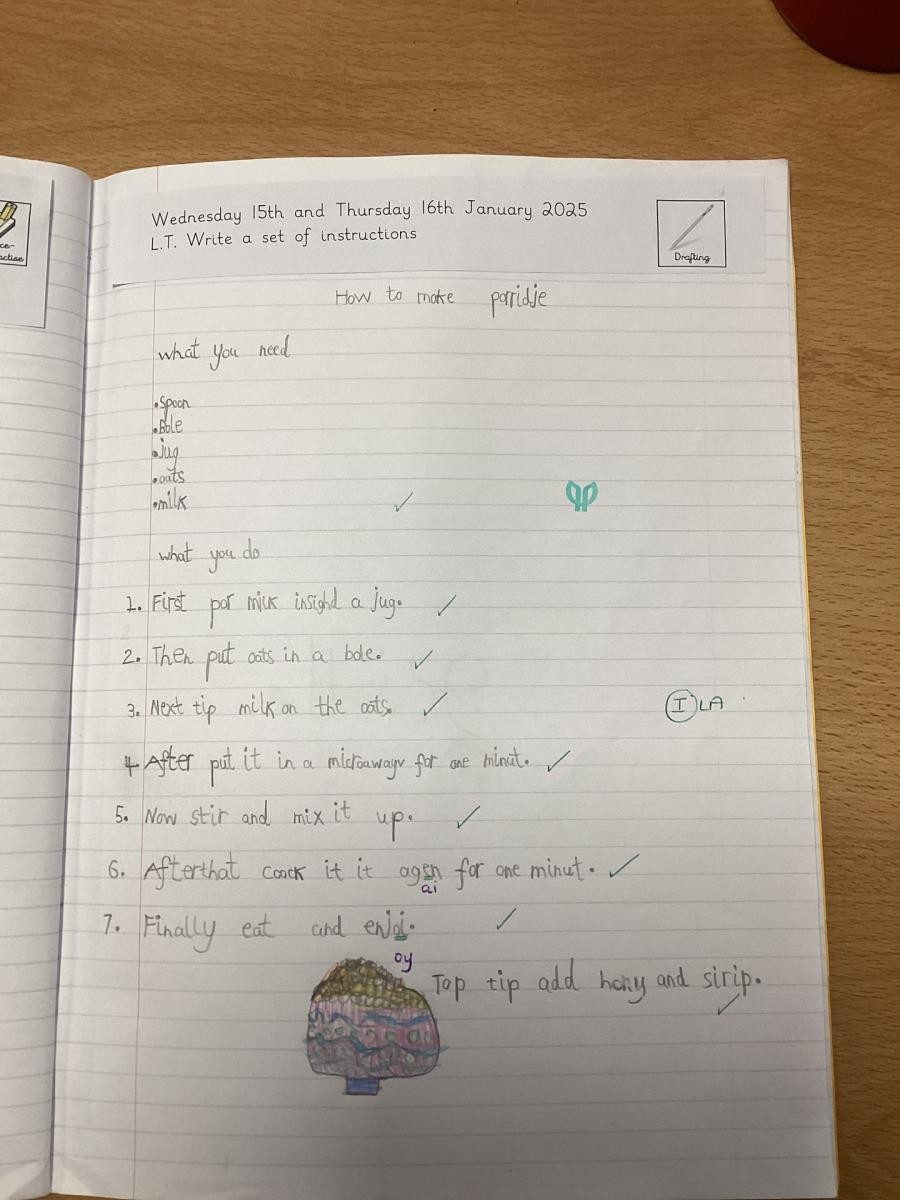 ce-
actise
Wednesday 15th and Thursday 16th January 2025
L.T. Write a set of instructions
Drafting
How to make porridje
what you need
•Spoon
•Bole
•Jug
•oats
•milk
what you do
1. First por milk insighd a jug.
2. Then put oats in a bole.
3. Next tip milk on the oats.
I LA
4 After put it in a for one minut.
5. Now stir and mix it up.
6. Afterthat coock it it agen for one minut.
ai
7. Finally eat and enjoi.
oy
Top tip add hony and sirip.